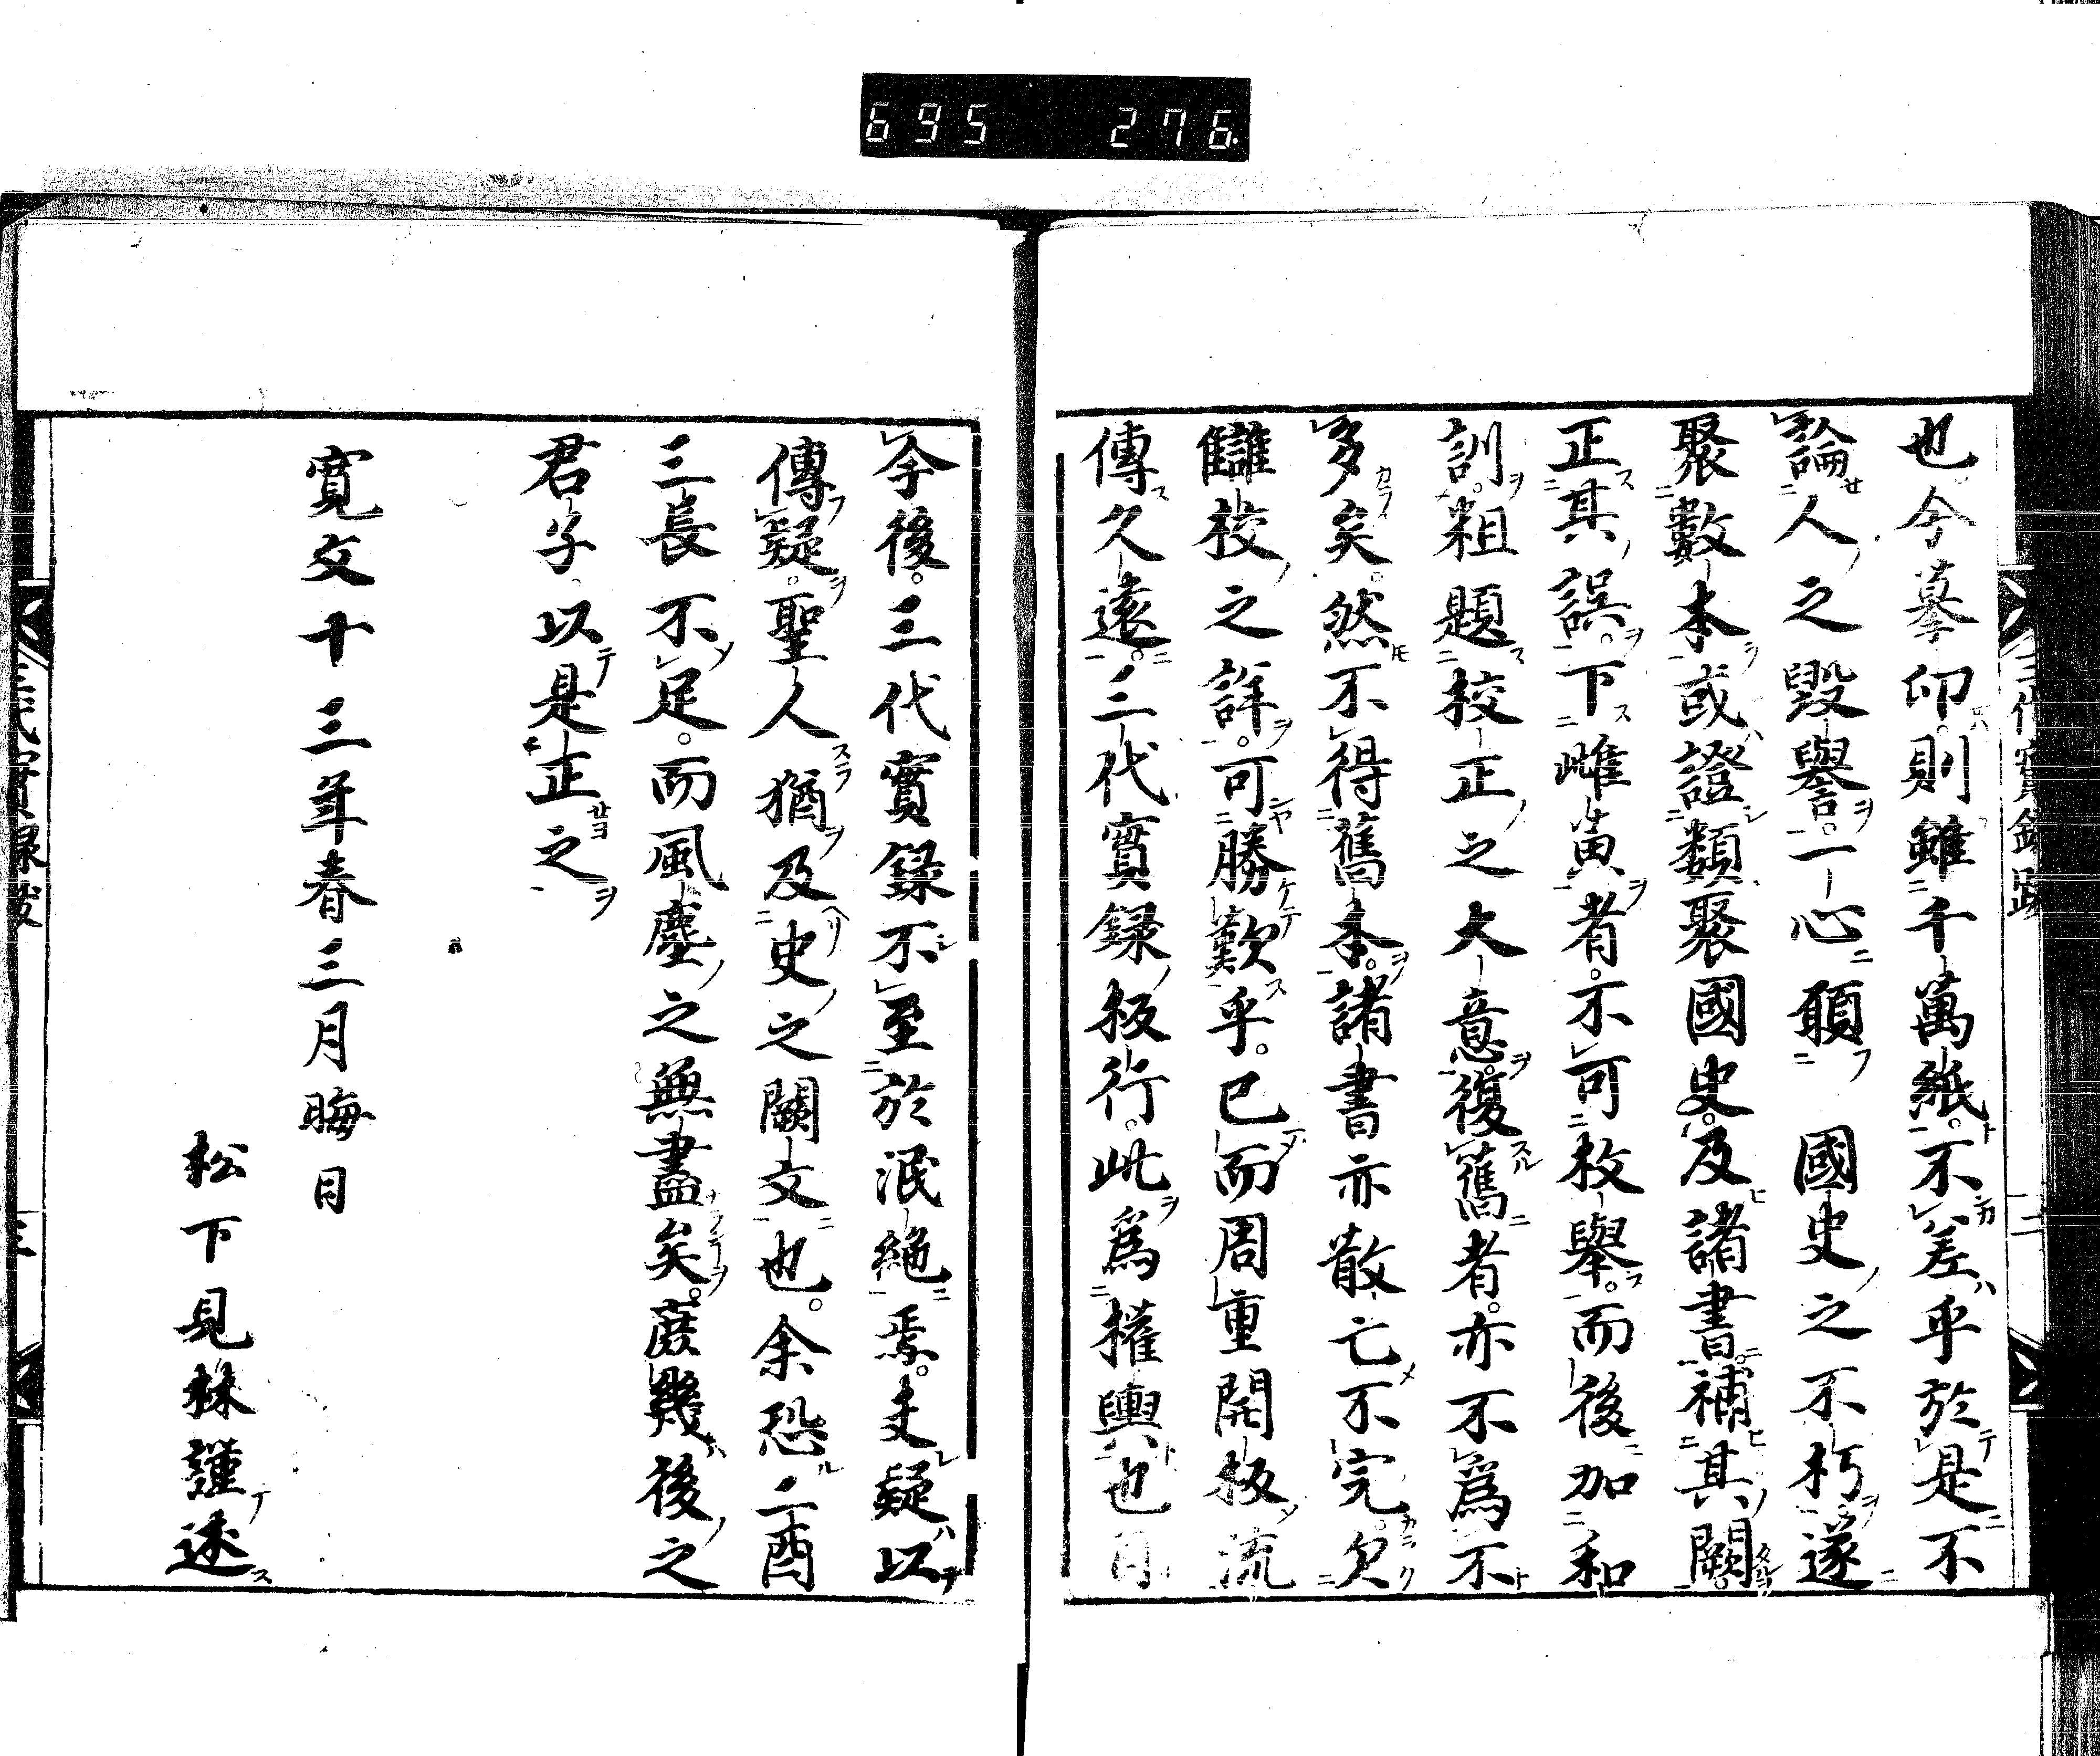 695 276
也今摹印則雖千萬紙不差乎於是不
論人之毀譽一心願　國史之不朽遂
聚數本或證類聚國史及諸書補其闕
正其誤下雌黄者不可枚擧而後加和
訓粗題校正之大意復舊者亦不爲不
多矣然不得舊本諸書亦散亡不完欠
讎校之詳可勝歎乎已而周重開板流
傳久遠三代實録板行此爲權輿也自
今後三代實録不至於泯絶焉夫疑以
傳疑聖人猶及史之闕文也余恐二酉
三長不足而風塵之無盡矣庶幾後之
君子以是正之
寛文十三年春三月晦日
松下見林謹述
三代實録跋
二
三代實録跋
三